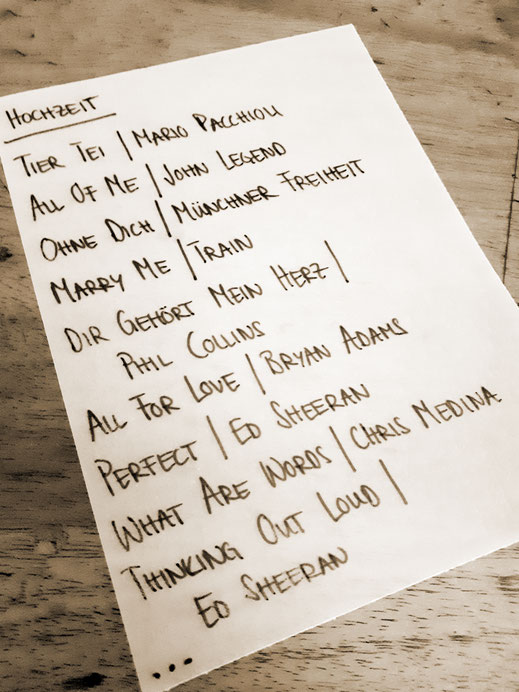 HOCHZEIT
TIER TEI | MARIO PACCHIOLI
ALL OF ME | JOHN LEGEND
OHNE DICH | MÜNCHNER FREIHEIT
MARRY ME | TRAIN
DIR GEHÖRT MEIN HERZ |
PHIL COLLINS
ALL FOR LOVE | BRYAN ADAMS
PERFECT | ED SHEERAN
WHAT ARE WORDS | CHRIS MEDINA
THINKING OUT LOUD |
ED SHEERAN
...